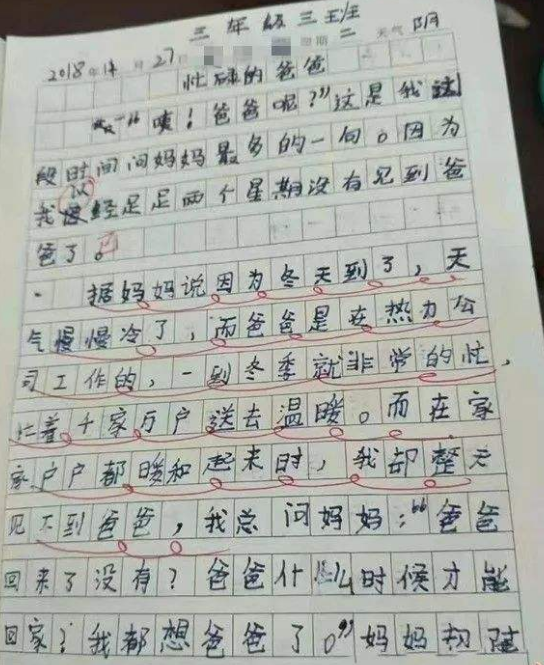 三年级三班
2018年11月27日 星期二 天气阴
忙碌的爸爸
“咦!爸爸呢?”这是我这
段时间问妈妈最多的一句。因为
我已经足足两个星期没有见到爸
爸了。
据妈妈说因为冬天到了,天
气慢慢冷了,而爸爸是在热力公
司工作的,一到冬季就非常的忙,
忙着千家万户送去温暖。而在家
家户户都暖和起来时,我却整天
见不到爸爸,我总问妈妈:“爸爸
回来了没有?爸爸什么时候才能
回家?我都想爸爸了。”妈妈